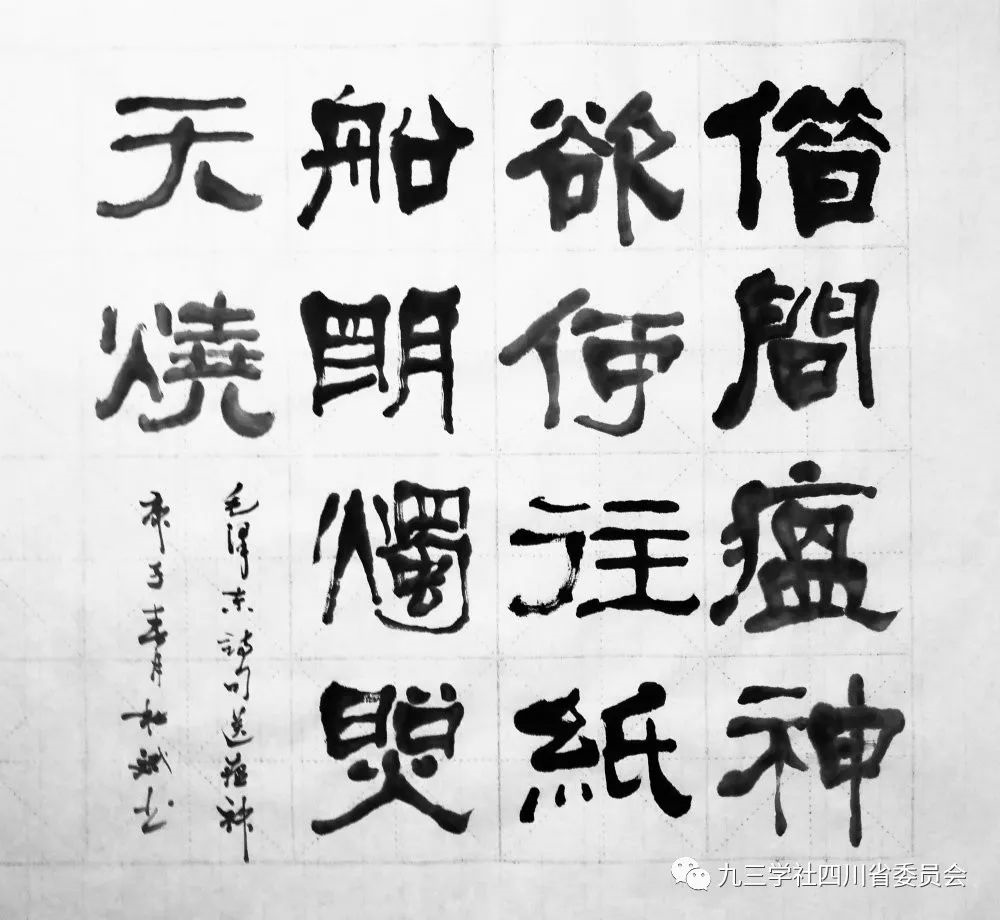 借問瘟神
欲何往紙
船明燭照
天燒
毛澤东詩句送瘟神
庚子春月斌书
九三学社四川省委员会